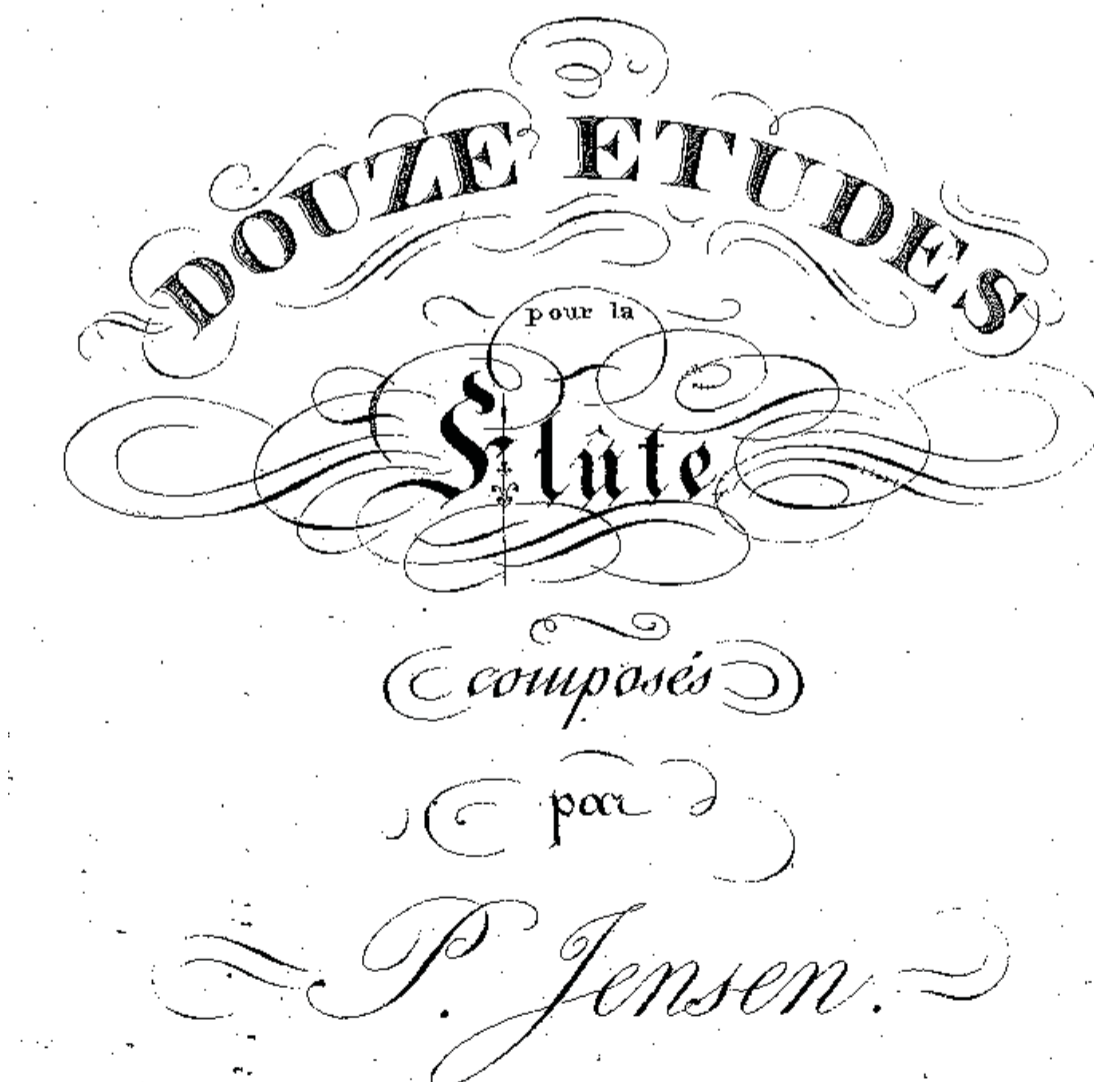 DOUZE ETUDES
pour la
Flûte
composés
par
P. Jensen.